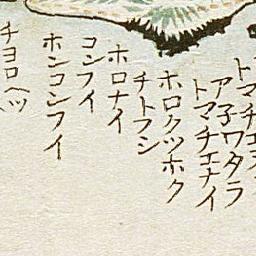 トマチエナイ
ア子ワタラ
トマチエナイ
ホロクツホク
チトフシ
ホロナイ
コンフイ
ホンコンフイ
チヨロヘツ